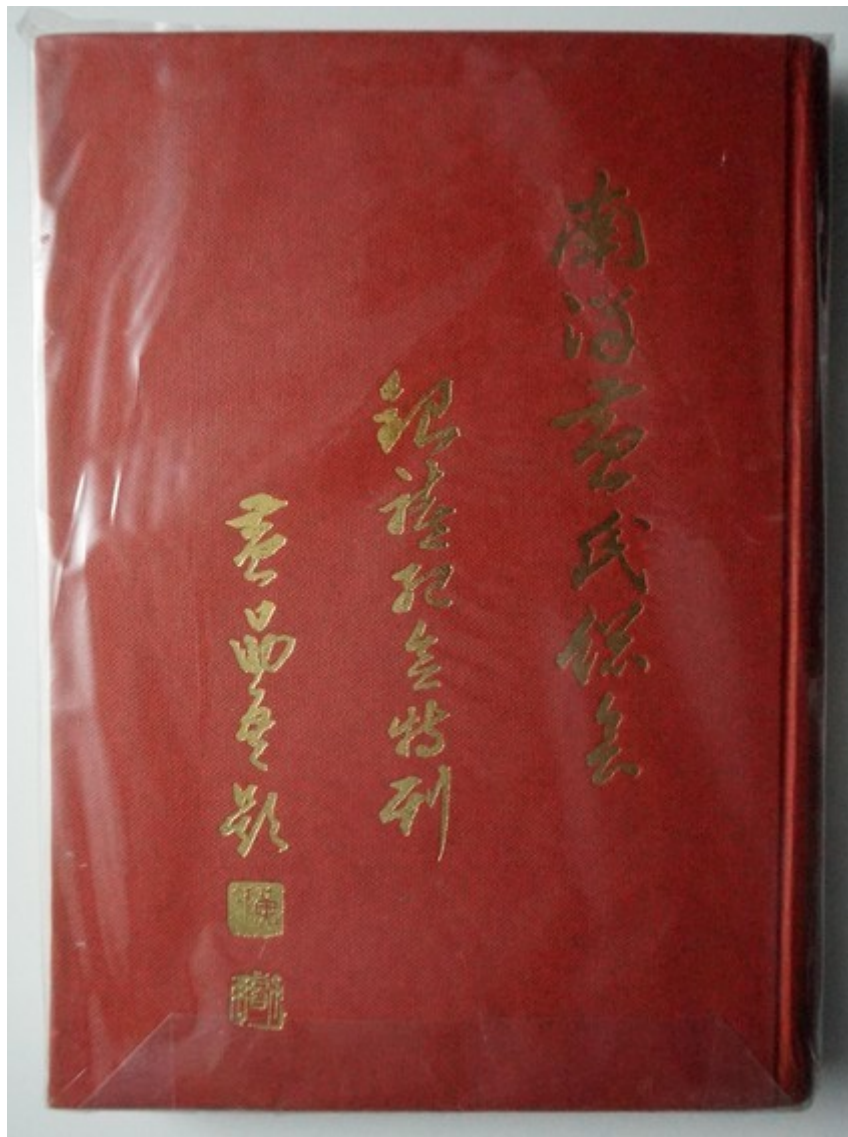 南洋黃氏總會
銀禧紀念特刊
黃勗吾題